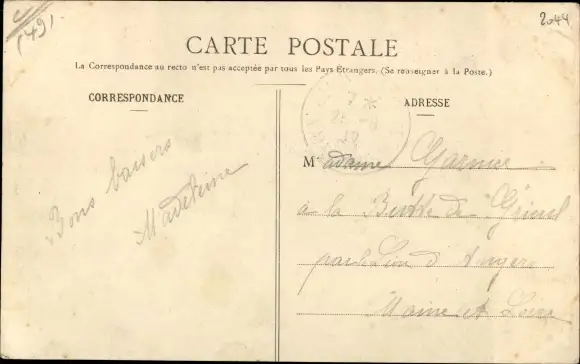 (49)
2044
CARTE POSTALE
La Correspondance au recto n'est pas acceptée par tous les Pays Étrangers. (Se renseigner à la Poste.)
CORRESPONDANCE
ADRESSE
Bons baisers
Madeleine
Madame Garnier
à la de
par le Lion d'Angers
Maine et Loire